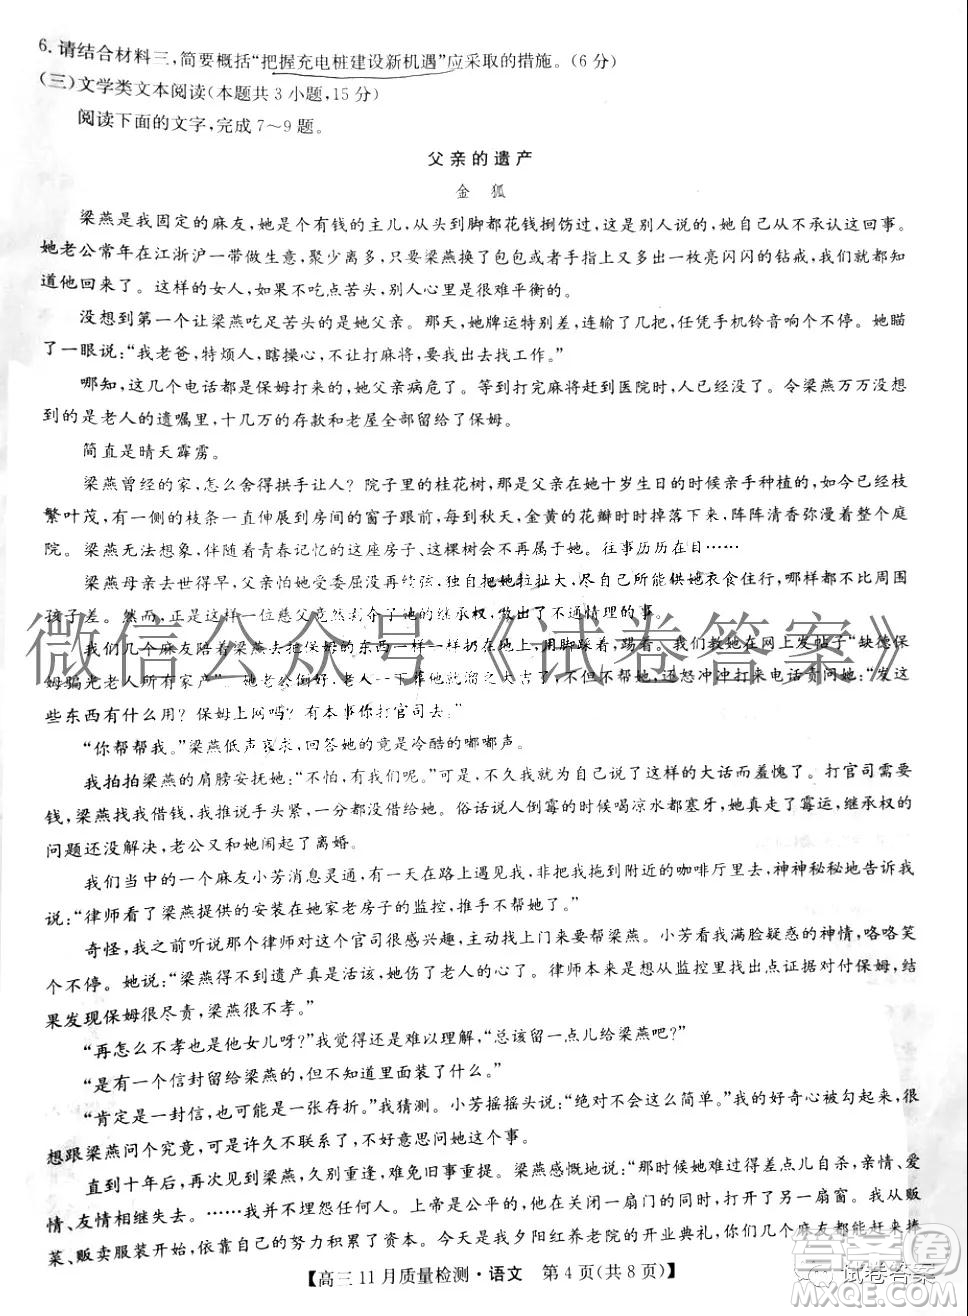 6. 请结合材料三,简要概括“把握充电桩建设新机遇”应采取的措施。(6 分)
(三)文学类文本阅读(本题共 3 小题,15 分)
阅读下面的文字,完成 7～9 题。
父亲的遗产
金 狐
梁燕是我固定的麻友,她是个有钱的主儿,从头到脚都花钱捯饬过,这是别人说的,她自己从不承认这回事。
她老公常年在江浙沪一带做生意,聚少离多,只要梁燕换了包包或者手指上多出一枚亮闪闪的钻戒,大家就都
知道他来过。这样的女人,如果不吃点苦头,别人心里是很难平衡的。
没想到第一个让梁燕吃足苦头的是她父亲。那天,她牌运特别差,连输了几把,任凭手机铃音响个不停。她瞄
了一眼说:“我老爸,特烦人,瞎操心,不让打麻将,要我出去找工作。”
哪知,这几个电话都是保姆打来的,她父亲病危了。等到打完麻将赶到医院时,人已经没了。令梁燕万万没想
到的是老人的遗嘱里,十几万的存款和老屋全部留给了保姆。
简直是晴天霹雳。
梁燕曾经的家,怎么舍得拱手让人?院子里的桂花树,那是父亲在她十岁生日的时候亲手种植的,如今枝
繁叶茂,有一侧的枝条一直伸展到房间的窗子跟前,每到秋天,金黄的花瓣时时掉落下来,阵阵清香弥漫了整个庭
院。梁燕无法想象,伴随着青春记忆的这座房子、这棵树会不再属于她。往事历历在目……
梁燕母亲去世得早,父亲怕她受委屈没有再续弦,独自把她拉扯大,尽自己所能供她衣食无忧,不比周围
孩子差。然而,正是这样的一位慈父竟然剥夺了她的继承权,做出了不通情理的事。
我们几个麻友陪着梁燕去把保姆的东西一样一样扔出去,用脚踩、踢。我们教她在网上发帖子“缺德保
姆骗光老人所有家产”,她老公倒好,老人一下葬他就溜之大吉了,还怒冲冲打来电话责问她:“发这
些东西有什么用?保姆上网吗?有本事你打官司去。”
“你帮帮我。”梁燕低声哀求,回答她的竟是冷酷的嘟嘟声。
我拍拍梁燕的肩膀安抚她:“不怕,有我们呢。”可是,不久我就为自己说了这样的大话而羞愧了。打官司需要
钱,梁燕找我借钱,我推说手头紧,一分都没借给她。俗话说人倒霉的时候喝凉水都塞牙,她真走了霉运,继承权的
问题还没解决,老公又和她闹起了离婚。
我们当中的一个麻友小芳消息灵通,有一天在路上遇见我,非把我拖到附近的咖啡厅里去,神神秘秘地告诉
我说:“律师看了梁燕提供的安装在她家老房子的监控,推手不帮她了。”
奇怪,我之前听说那个律师对这个官司很感兴趣,主动找上门来要帮梁燕。小芳看我满脸疑惑的神情,咯咯笑
个不停。她说:“梁燕得不到遗产真是活该,她伤了老人的心了。律师本来是想从监控里找出点证据对付保姆,结
果发现保姆很尽责,梁燕很不孝。”
“再怎么不孝也是他女儿呀。”我觉得老人的做法有些难以理解,“总该留一点儿给梁燕吧?”
“是有一个信封留给梁燕,但不知道是什么。”
“肯定是一封信,也可能是一张存折。”我猜测。小芳摇摇头说:“绝对不会这么简单。”我的好奇心被勾起来,很
想跟梁燕问个究竟,可是许久不联系了,不好意思问她这个事。
直到十年后,再次遇到梁燕,久别重逢,难免旧事重提。梁燕感慨地说:“那时候她难过得差点儿自杀,亲情、爱
情、友情相继失去。……上帝是公平的,他在关闭一扇门的同时,又打开了另一扇窗。我从贩
菜、贩卖服装开始,依靠自己的努力积累了资本。今天是我夕阳红养老院的开业典礼,你们几个麻友都能赶来捧
【高三 11 月质量检测·语文 第 4 页(共 8 页)】
微信公众号《试卷答案》
答案圈
试卷答案